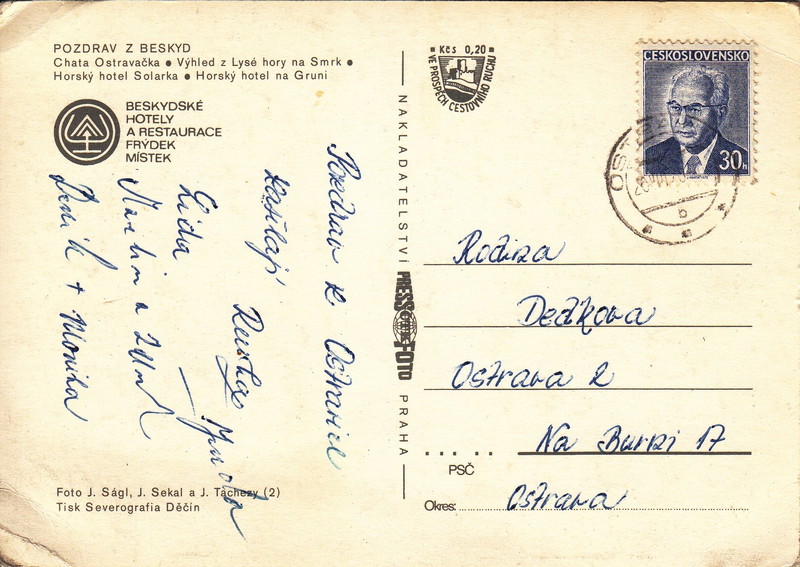 POZDRAV Z BESKYD
Chata Ostravačka ● Výhled z Lysé hory na Smrk ●
Horský hotel Solarka ● Horský hotel na Gruni
BESKYDSKÉ
HOTELY
A RESTAURACE
FRÝDEK
MÍSTEK
Pozdrav z Ostravice
Lída
Zdeník + Monika
Foto J. Ságl, J. Sekal a J. Táchezy (2)
Tisk Severografia Děčín
Kčs 0,20
VE PROSPĚCH CESTOVNÍHO RUCHU
NAKLADATELSTVÍ
PRESSFOTO
PRAHA
ČESKOSLOVENSKO
30h
Rodina
Dedkova
Ostrava 2
Na Burni 17
PSČ
Okres: Ostrava